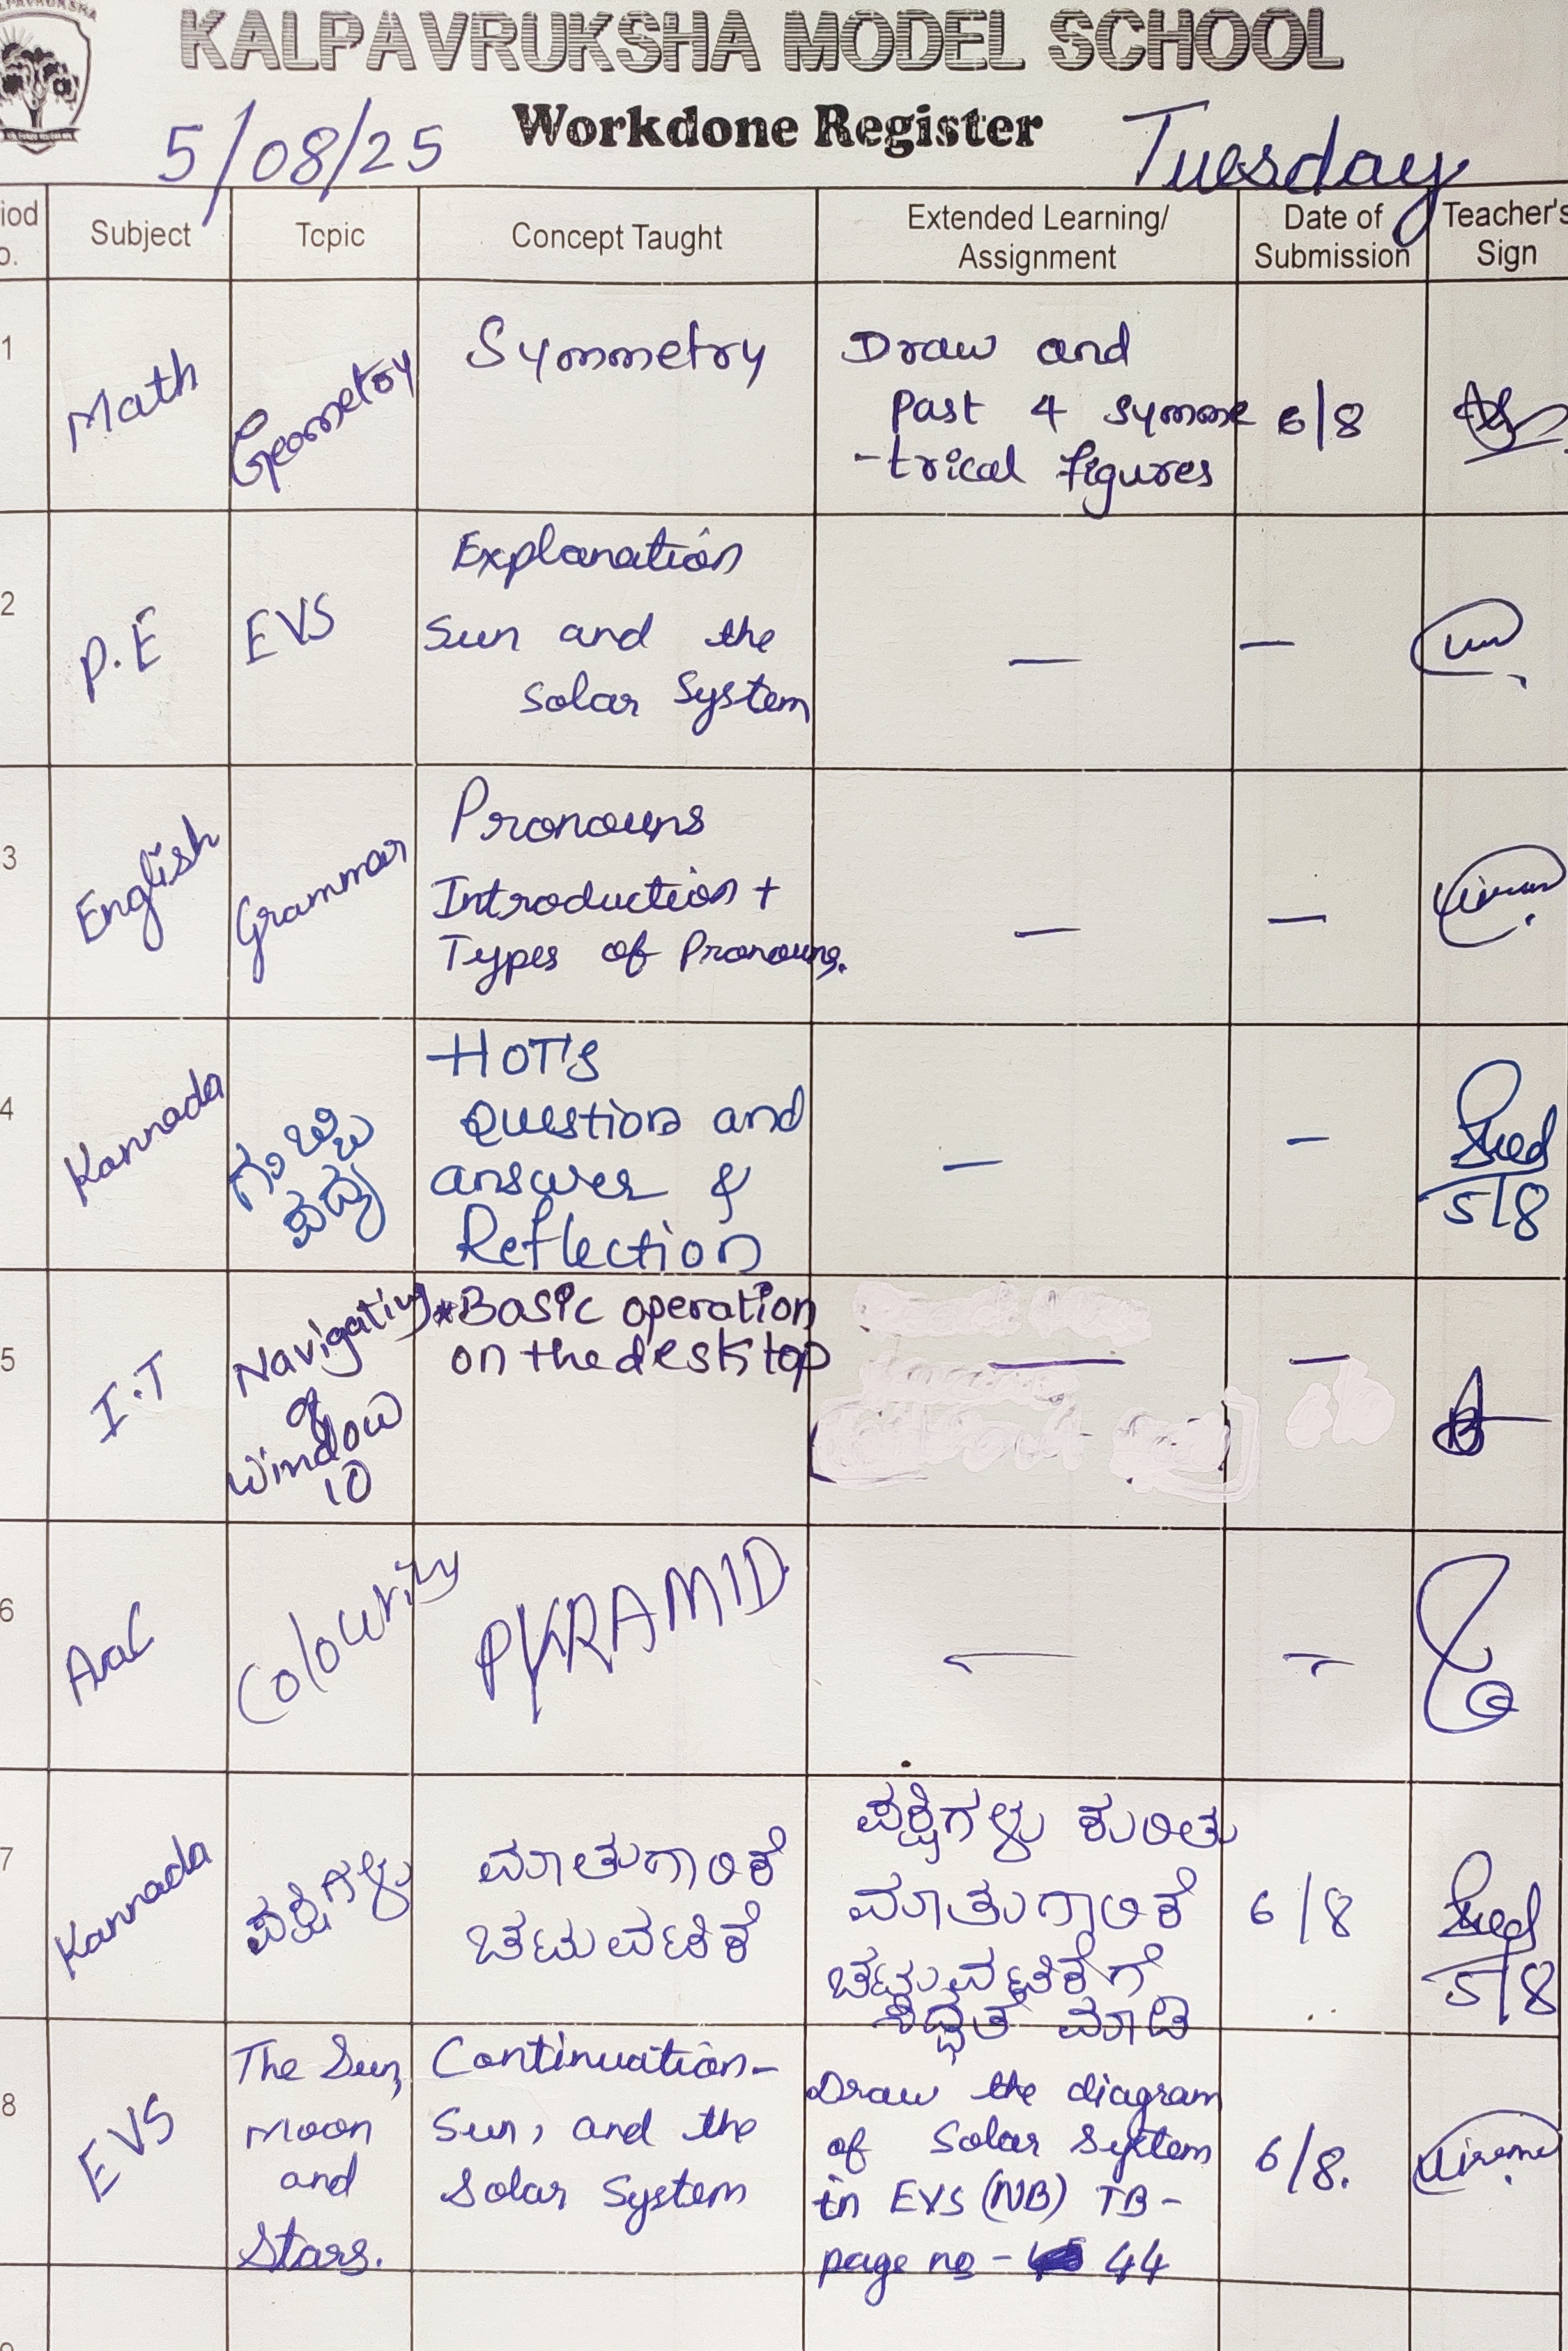 KALPAVRUKSHA MODEL SCHOOL
Workdone Register
5/08/25
Tuesday
Subject
Topic
Concept Taught
Extended Learning/
Assignment
Date of
Submission
Teacher's
Sign
1
Math
Geometry
Symmetry
Draw and
Past 4 symme
-trical figures
6/8
2
P.E
EVS
Explanation
Sun and the
Solar System
—
—
3
English
Grammar
Pronouns
Introduction +
Types of Pronouns.
—
—
4
Kannada
ಗುಬ್ಬಿ
ಪದ್ಯ
HOT'S
Question and
answer &
Reflection
—
—
5/8
5
I.T
Navigating
of
Window
10
*Basic operation
on the desktop
—
—
6
Colouring
PYRAMID
—
—
7
Kannada
ಪಕ್ಷಿಗಳು
ಮಾತುಗಾರಿಕೆ
ಚಟುವಟಿಕೆ
ಪಕ್ಷಿಗಳು ಕುರಿತು
ಮಾತುಗಾರಿಕೆ
ಚಟುವಟಿಕೆಗೆ
ಸಿದ್ಧತೆ ಮಾಡಿ
6/8
5/8
8
EVS
The Sun,
Moon
and
Stars.
Continuation-
Sun, and the
Solar System
Draw the diagram
of Solar System
in EVS (NB) TB-
page no - 44
6/8.